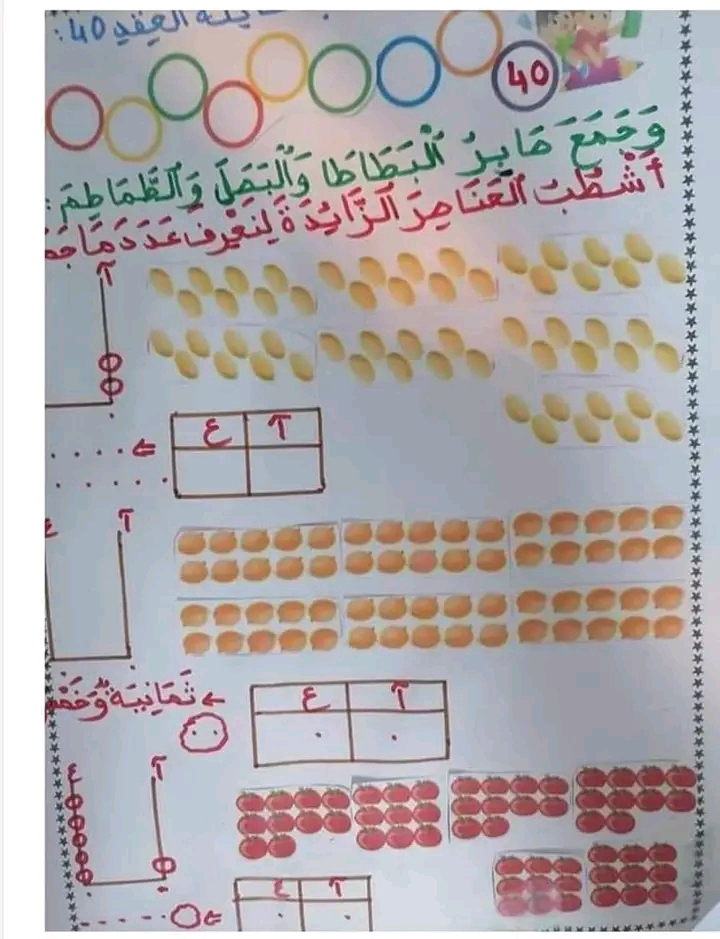 العقد 40:
40
وَجَمَعَ صَابِرُ الْبَطَاطَا وَالْبَصَلَ وَالطَّمَاطِمَ:
أَشْطُبُ الْعَنَاصِرَ الزَّائِدَةَ لِنَعْرِفَ عَدَدَ مَا
آ
آ ع
آ ع
آ ع
ثَمَانِيَةٌ وَخَمْ
آ ع
آ ع